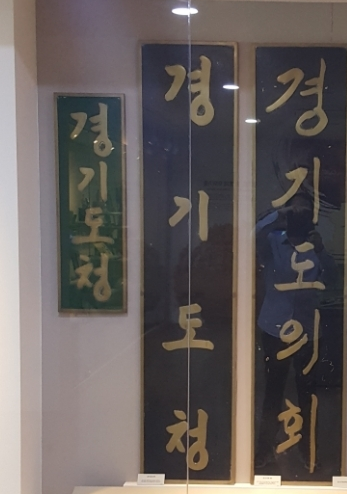 경기도청
경기도청
경기도의회